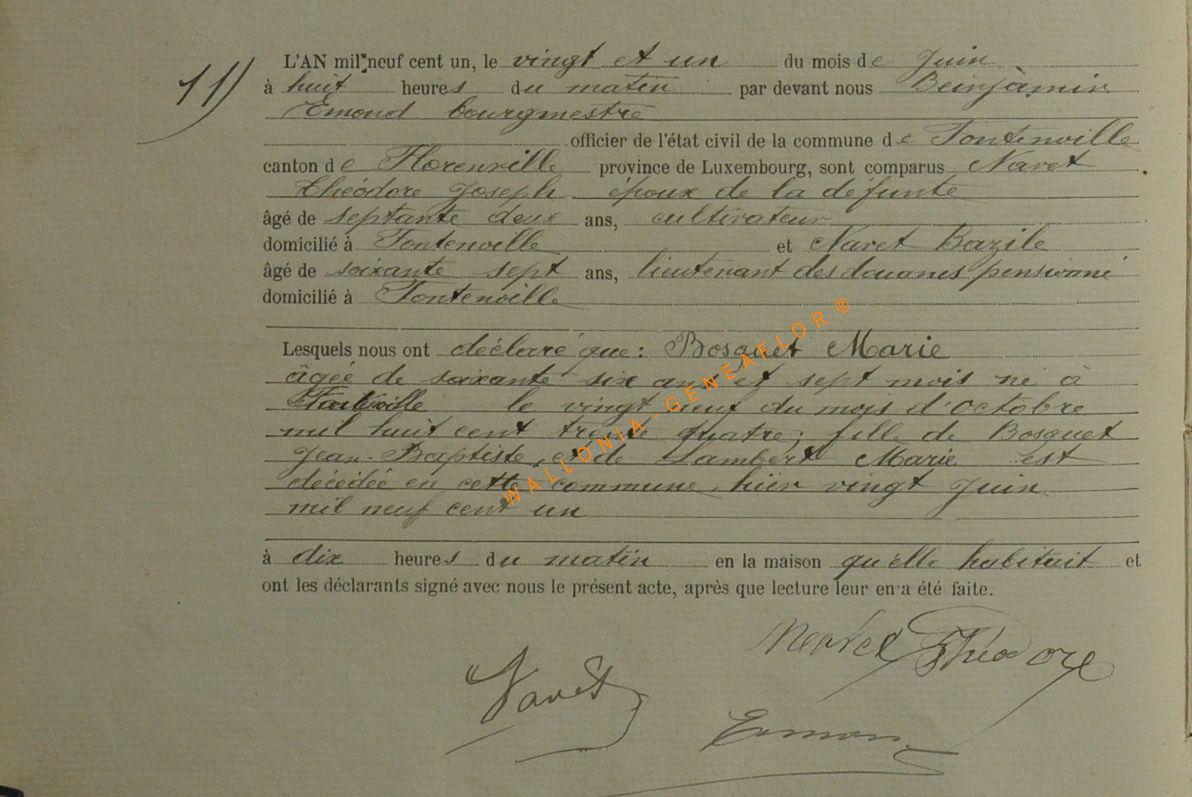 11)
L'AN mil neuf cent un, le vingt et un du mois de Juin
à huit heures du matin par devant nous Beinjàmin
Emond bourgmestre
officier de l'état civil de la commune de Fontenoille
canton de Florenville province de Luxembourg, sont comparus Navet
théodore Joseph époux de la défunte
âgé de septante deux ans, cultivateur
domicilié à Fontenoille et Navet Bazile
âgé de soixante sept ans, lieutenant des douanes pensionné
domicilié à Fontenoille
Lesquels nous ont déclaré que: Bosquet Marie
âgée de soixante six ans et sept mois né à
le vingt neuf du mois d'octobre
mil huit cent trente quatre; fille de Bosquet
Jean-Baptiste, et de Lambert Marie est
décédée en cette commune hier vingt Juin
mil neuf cent un
à dix heures du matin en la maison qu'elle habitait et
ont les déclarants signé avec nous le présent acte, après que lecture leur en a été faite.
Théodore
Navet
Emon
WALLONIA-GENEAFLOR®